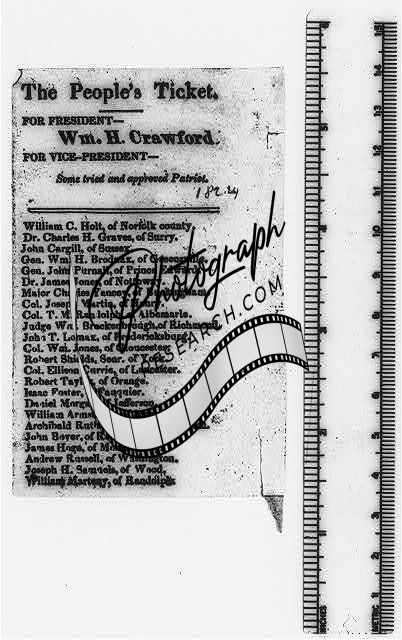 The People's Ticket.
FOR PRESIDENT—
Wm. H. Crawford.
FOR VICE-PRESIDENT—
Some tried and approved Patriot.
1824
William C. Holt, of Norfolk county
Dr. Charles H. Graves, of Surry.
John Cargill, of Sussex
Gen. Wm. H. Brodnax, of
Gen. John Purnall, of Prince Edward
Dr. James Jones, of Nottoway
Major Charles Yancey, of
Col. Joseph Martin, of Henry
Col. T. M. Randolph, of Albemarle.
Judge Wm. Brockenbrough, of Richmond
John T. Lomax, of Fredericksburg
Col. Wm. Jones, of Gloucester
Robert Shields, Senr. of York
Col. Ellison Currie, of Lancaster.
Robert Taylor, of Orange.
Isaac Foster, of Fauquier.
Daniel Morgan, Jefferson
William
Archibald
John Bower, of
James Hoge, of
Andrew Russell, of Washington.
Joseph H. Samuels, of Wood.
William Marteny, of Randolph
Photograph
SEARCH.COM
INCHES
METRIC